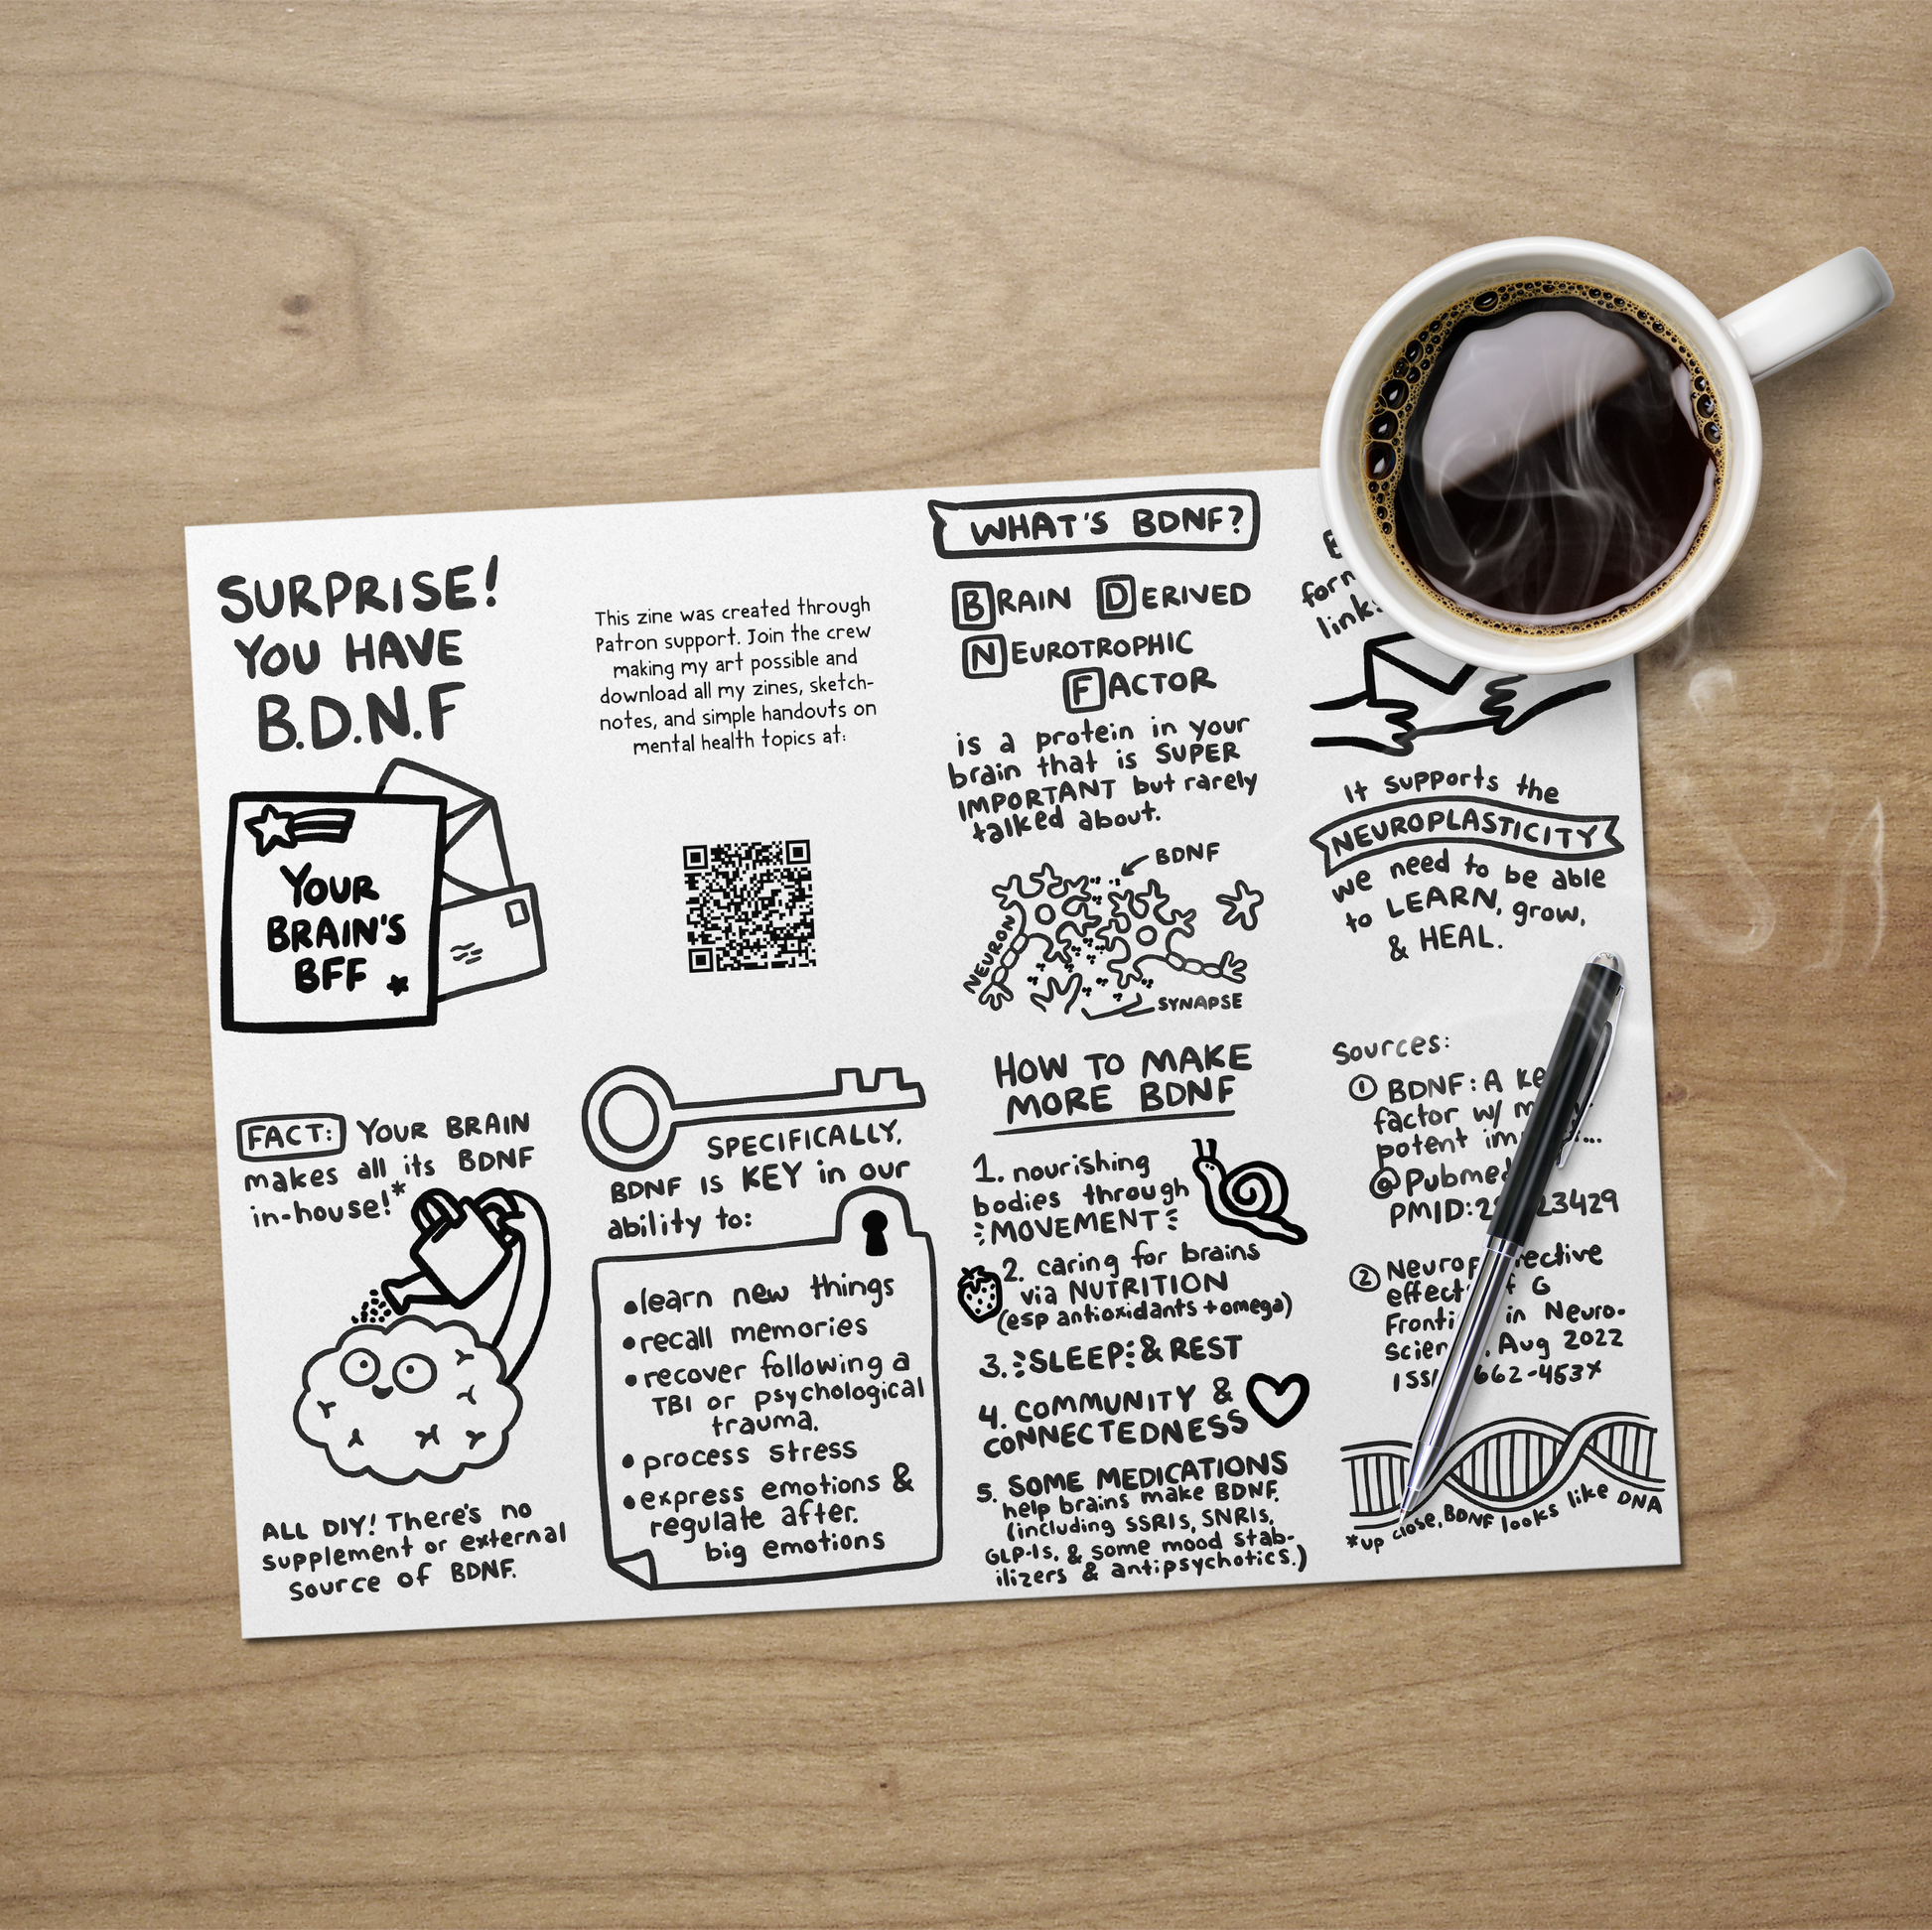 SURPRISE!
YOU HAVE
B.D.N.F
YOUR
BRAIN'S
BFF
This zine was created through
Patron support. Join the crew
making my art possible and
download all my zines, sketch-
notes, and simple handouts on
mental health topics at:
WHAT'S BDNF?
BRAIN DERIVED
NEUROTROPHIC
FACTOR
is a protein in your
brain that is SUPER
IMPORTANT but rarely
talked about.
BDNF
NEURON
SYNAPSE
It supports the
NEUROPLASTICITY
we need to be able
to LEARN, grow,
& HEAL.
FACT: YOUR BRAIN
makes all its BDNF
in-house!*
ALL DIY! There's no
supplement or external
source of BDNF.
SPECIFICALLY,
BDNF IS KEY in our
ability to:
•learn new things
•recall memories
•recover following a
TBI or psychological
trauma.
•process stress
•express emotions &
regulate after.
big emotions
HOW TO MAKE
MORE BDNF
1. nourishing
bodies through
MOVEMENT
2. caring for brains
via NUTRITION
(esp antioxidants + omega)
3. SLEEP & REST
4. COMMUNITY &
CONNECTEDNESS
5. SOME MEDICATIONS
help brains make BDNF.
(including SSRIs, SNRIs,
GLP-1s, & some mood stab-
ilizers & antipsychotics.)
Sources:
① BDNF: A
factor w/
potent
@Pubmed
PMID:
②
in Neuro-
Aug 2022
*up close, BDNF looks like DNA